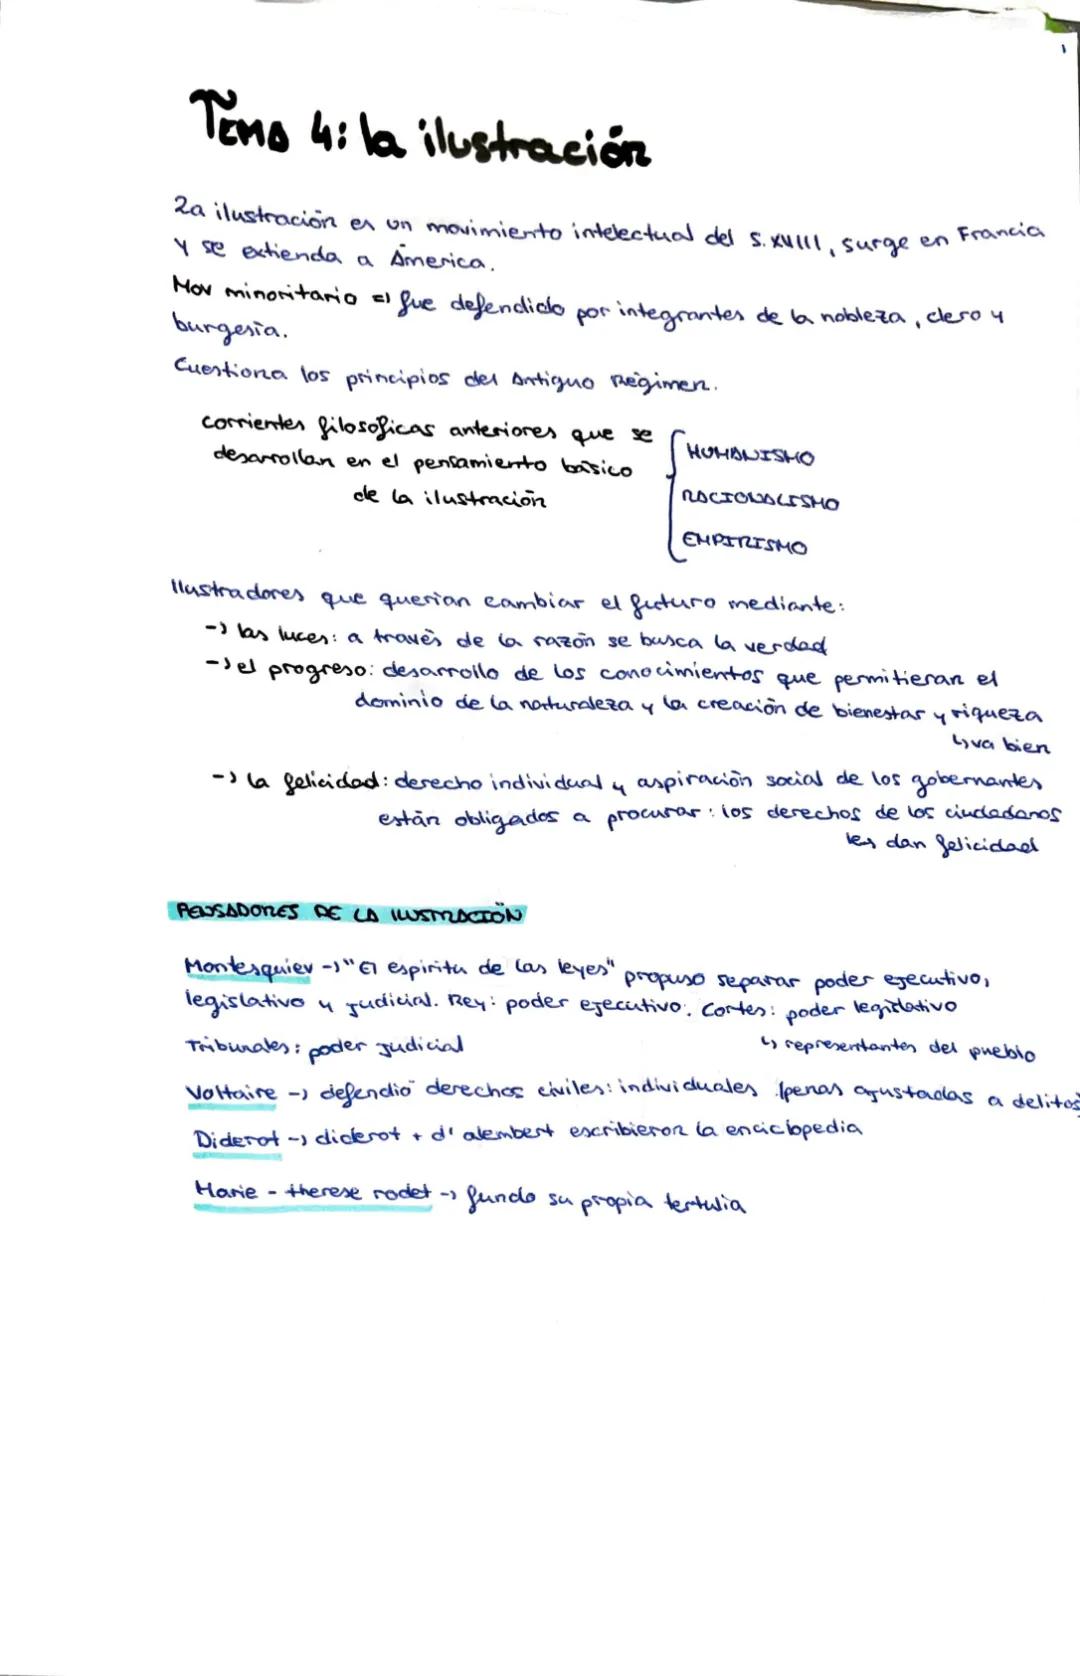 Tema 4: la ilustración
La ilustración es un movimiento intelectual del s. XVIII, surge en Francia
y se extienda a America.
Mov minoritario => fue defendido por integrantes de la nobleza, clero y
burgesía.
Cuestiona los principios del Antiguo Régimen.
corrientes filosoficas anteriores que se
desarrollan en el pensamiento básico
de la ilustración
HUMANISMO
RACIONALISMO
EMPIRISMO
Ilustradores que querian cambiar el futuro mediante:
-> las luces: a través de la razón se busca la verdad
-> el progreso: desarrollo de los conocimientos que permitieran el
dominio de la naturaleza y la creación de bienestar y riqueza
↳ va bien
-> la felicidad: derecho individual y aspiración social de los gobernantes
están obligados a procurar: los derechos de los ciudadanos
les dan felicidad
PENSADORES DE LA ILUSTRACIÓN
Montesquiev -> "El espiritu de las leyes" propuso separar poder ejecutivo,
legislativo y judicial. Rey: poder ejecutivo. Cortes: poder legislativo
↳ representantes del pueblo
Tribunales: poder judicial
Voltaire -> defendió derechos civiles: individuales, penas ajustadas a delitos
Diderot -> diderot + d'alembert escribieron la enciclopedia
Marie - therese rodet -> fundo su propia tertulia